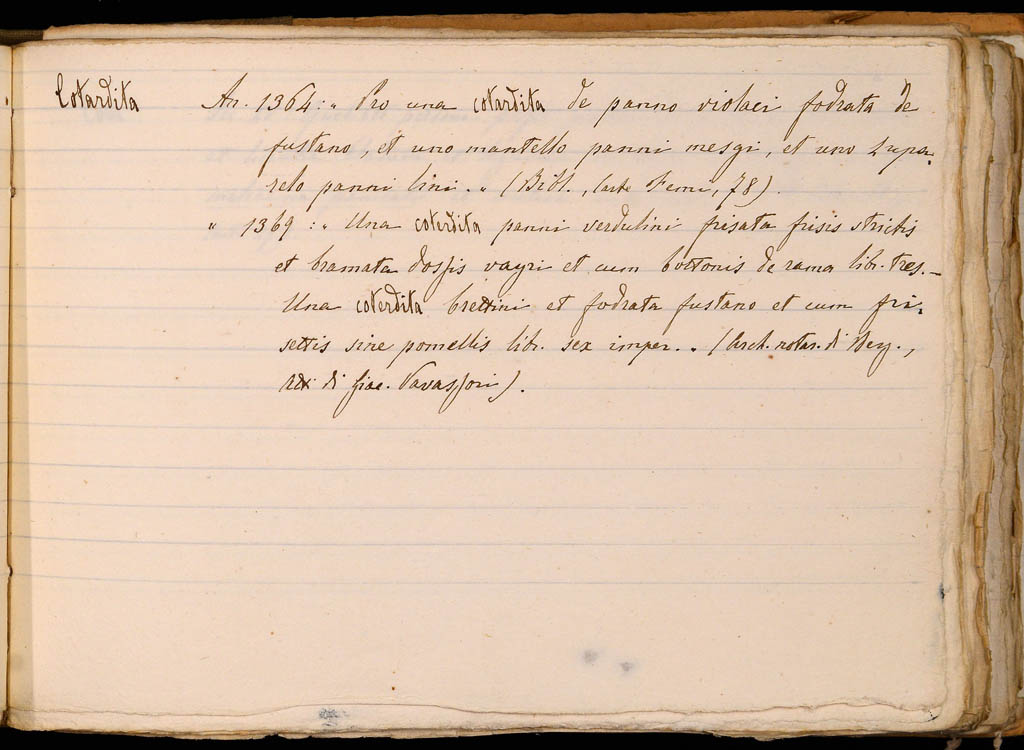 Cotardita An. 1364: „ Pro una cotardita de panno violaci fodrata de
fustano, et uno mantello panni mesgi, et uno zupa-
relo panni lini. „ (Bibl., Carte Femi, 78).
„ 1369 : „ Una coterdita panni verdulini frisata frisis strictis
et bramata dossis vayri et cum bottonis de rama libr. tres. –
Una coterdita brettini et fodrata fustano et cum fri-
settis sine pomellis libr. sex imper. „ (Arch. notar. di Berg.,
di Giac. Vavassori).